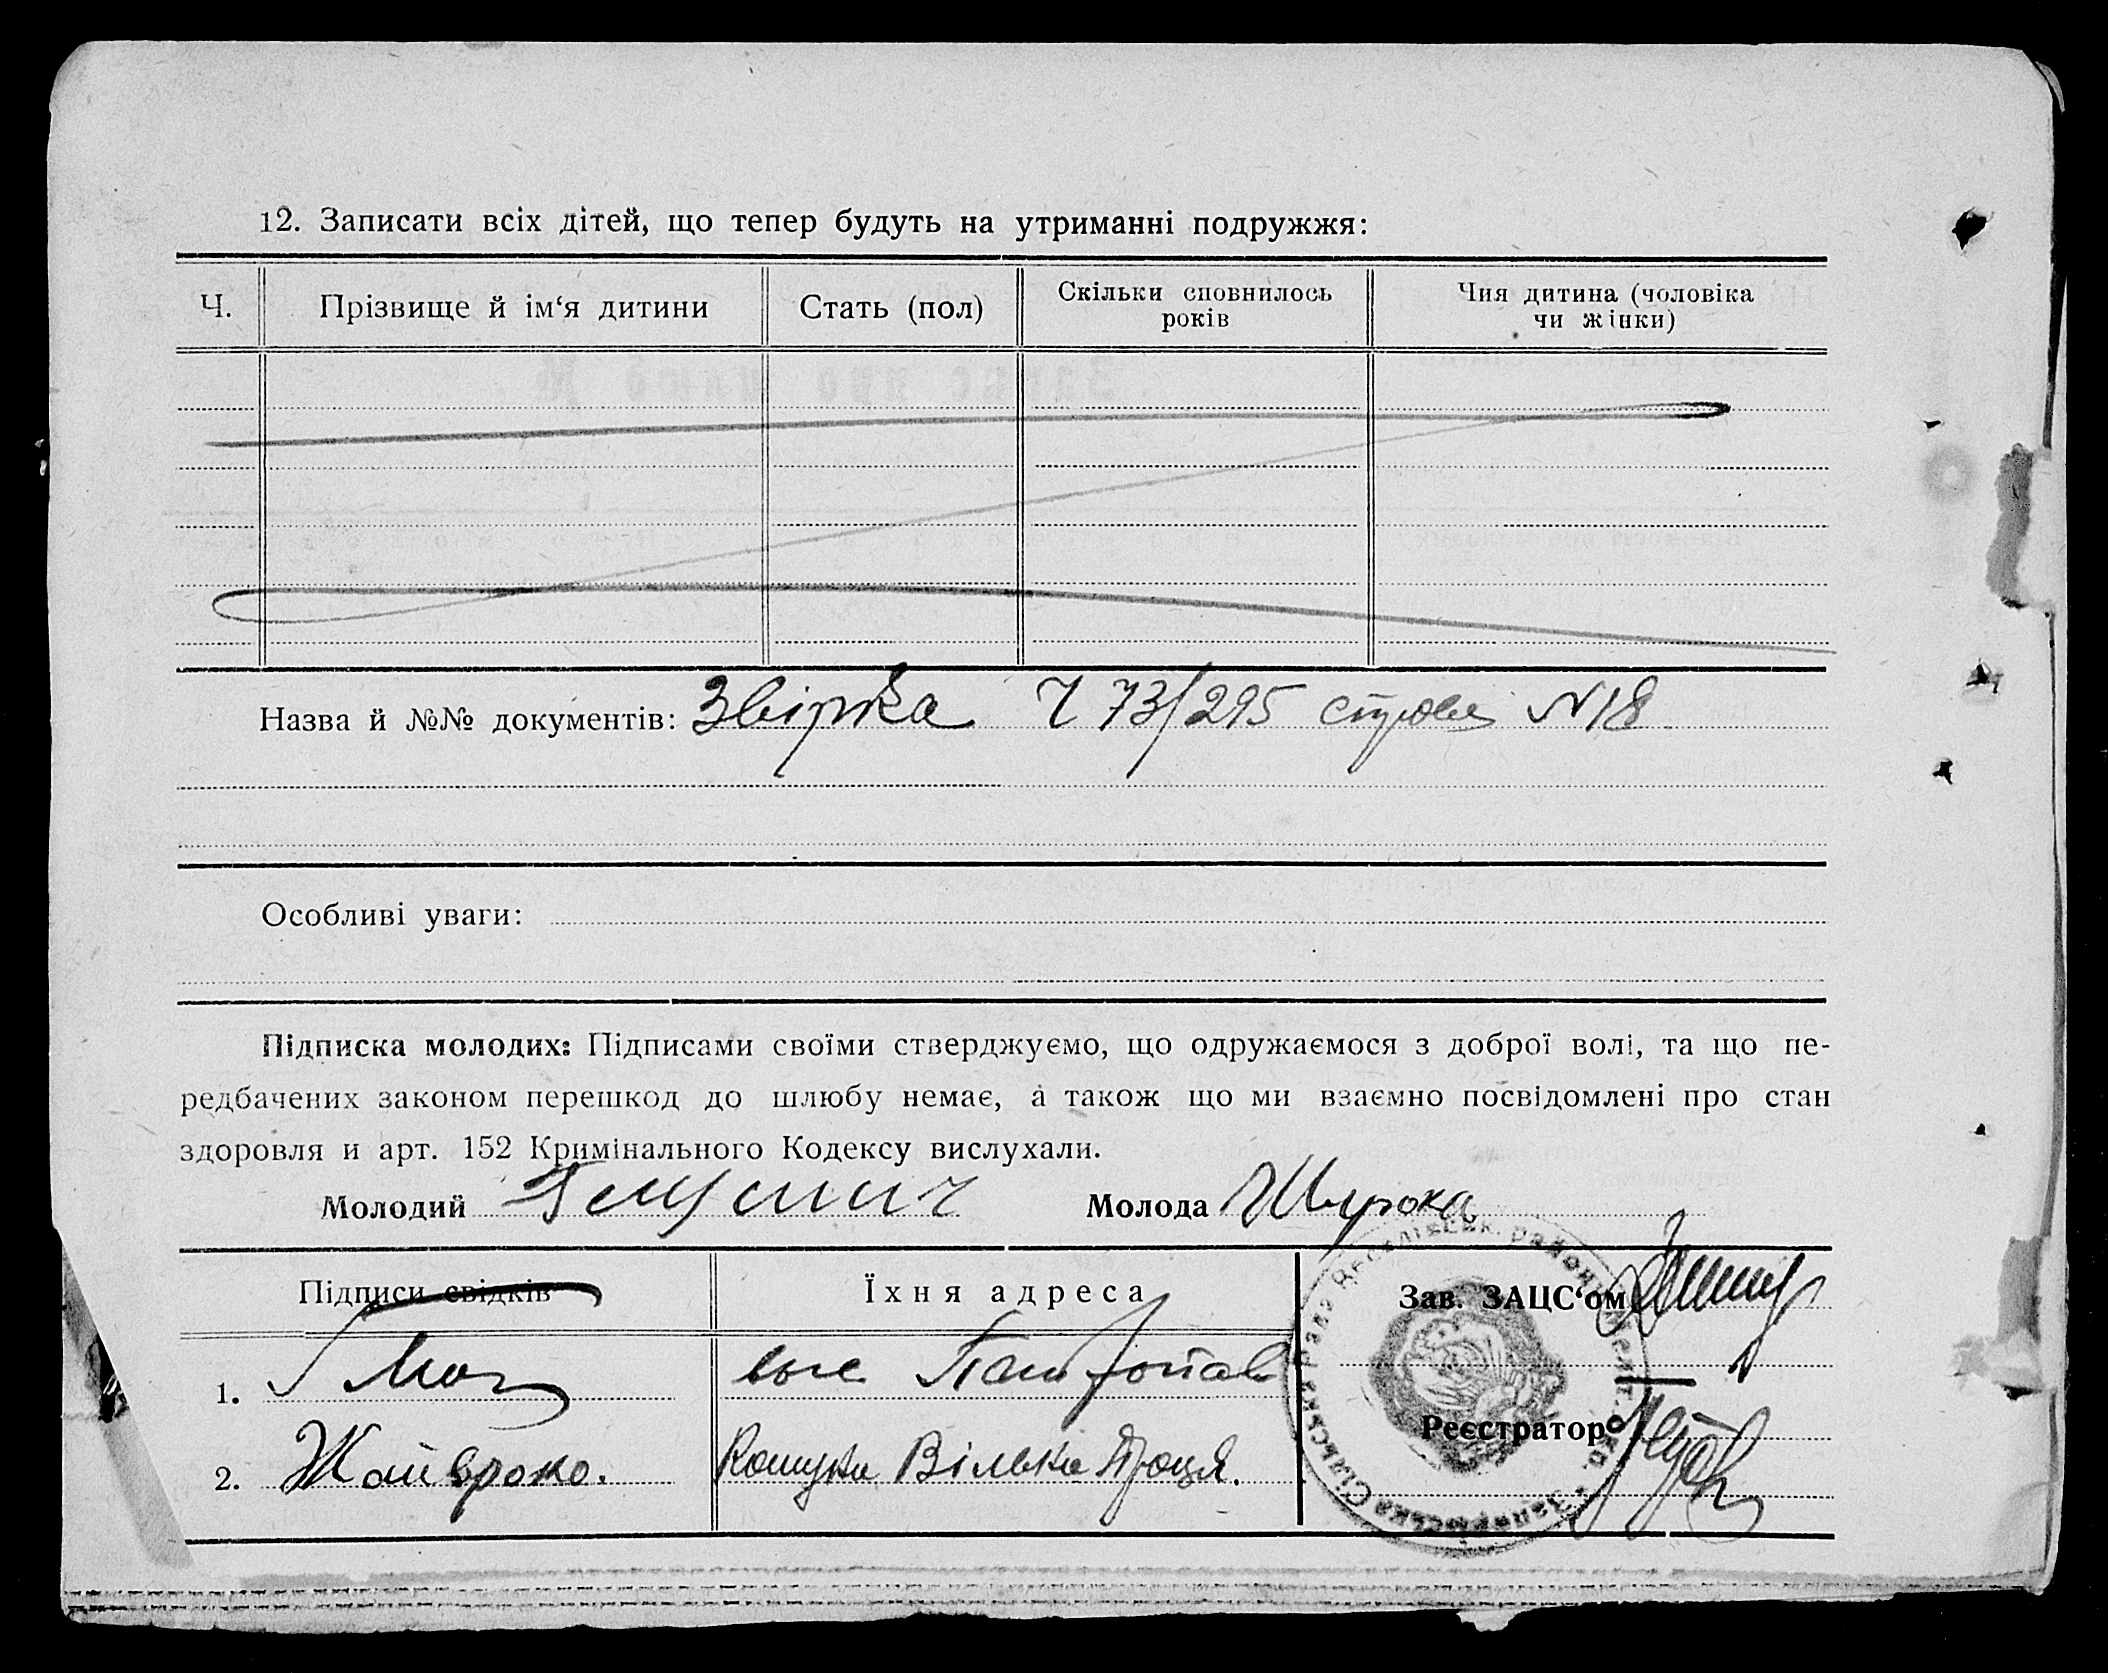 12. Записати всіх дітей, що тепер будуть на утриманні подружжя:
Ч. Прізвище й ім‘я дитини Стать (пол) Скільки сповнилось років Чия дитина (чоловіка чи жінки)
Назва й №№ документів: Звірка Ч 73/295 N 18
Особливі уваги:
Підписка молодих: Підписами своїми стверджуємо, що одружаємося з доброї волі, та що пе-
редбачених законом перешкод до шлюбу немає, а також що ми взаємно посвідомлені про стан
здоровля и арт. 152 Кримінального Кодексу вислухали.
Молодий Молода Широка
Підписи свідків Їхня адреса Зав. ЗАЦС‘ом
1.
Реєстратор
2. Вілька